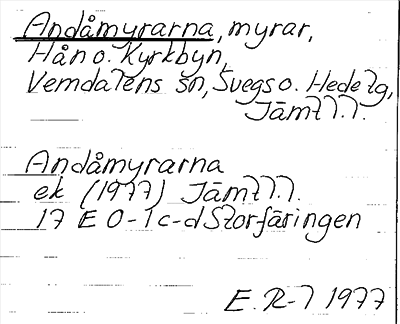 Andåmyrarna, myrar,
Hån o. Kyrkbyn,
Vemdalens sn, Svegs o. Hede tg,
Jämtl. l.
Andåmyrarna
ek (1977) Jämtl. l.
17 E 0-1 c-d Storfäringen
E. R-l 1977